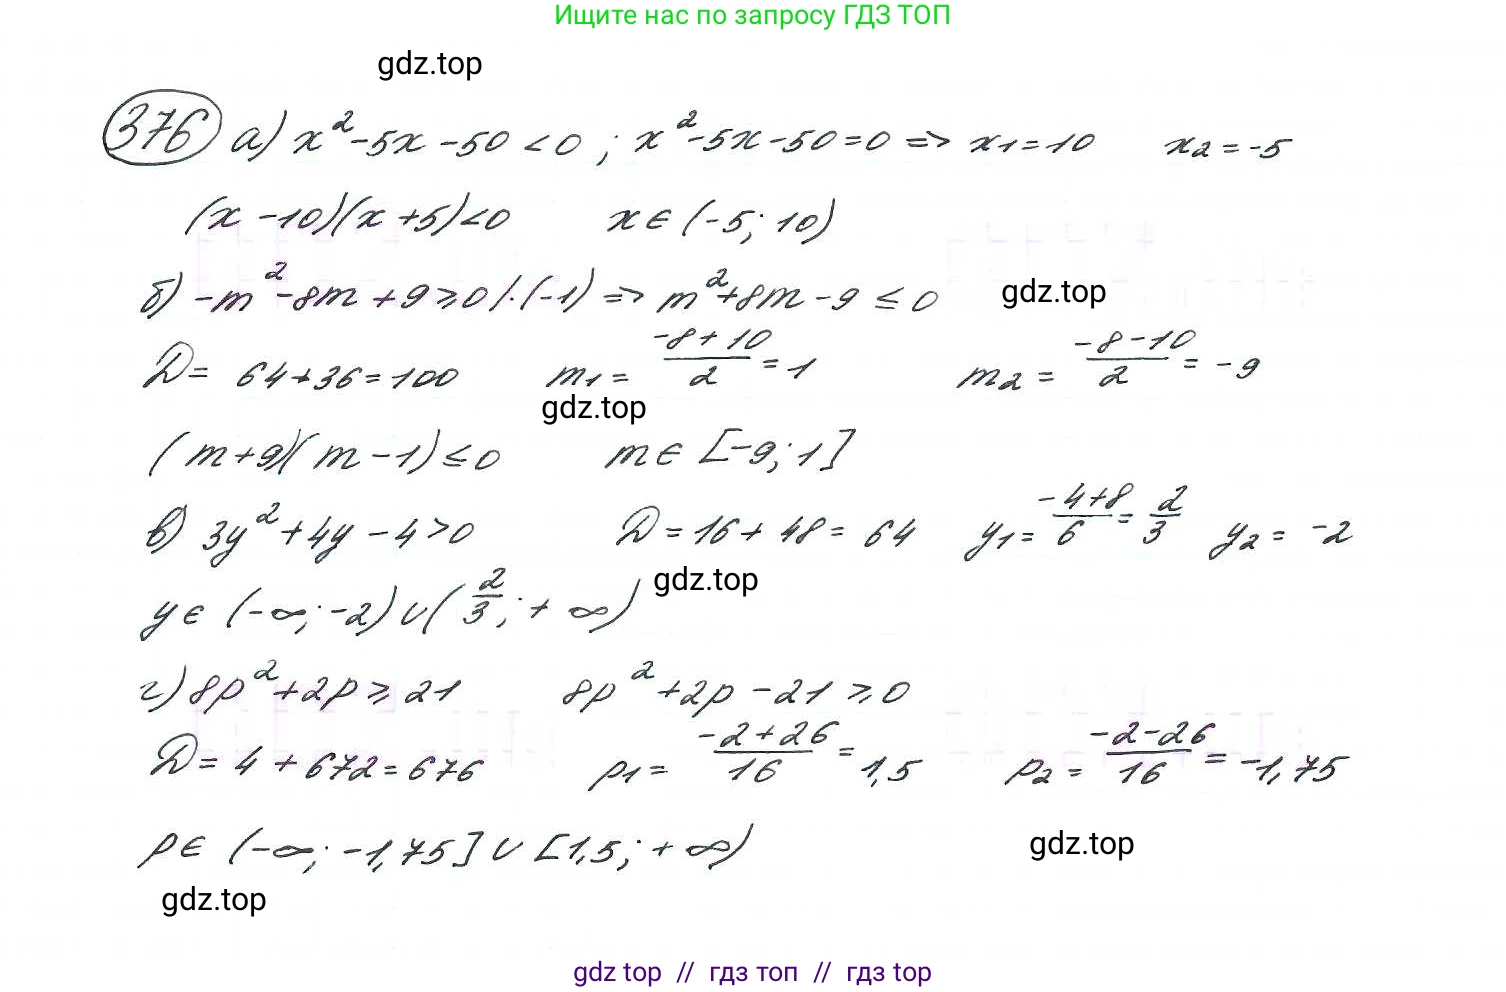 Ищите нас по запросу ГДЗ ТОП
gdz.top
376 а) x² -5x -50 < 0 ; x² -5x -50 = 0 => x₁ = 10 x₂ = -5
(x -10)(x +5) < 0 x ∈ (-5; 10)
б) -m² -8m + 9 ≥ 0 /·(-1) => m² +8m - 9 ≤ 0
gdz.top
D = 64+36 = 100 m₁ = (-8+10)/2 = 1 m₂ = (-8-10)/2 = -9
gdz.top
(m+9)(m -1) ≤ 0 m ∈ [-9; 1]
в) 3y² + 4y - 4 > 0 D = 16 + 48 = 64 y₁ = (-4+8)/6 = 2/3 y₂ = -2
gdz.top
y ∈ (-∞; -2) ∪ (2/3; + ∞)
г) 8p² +2p ≥ 21 8p² +2p -21 ≥ 0
D = 4 + 672 = 676 p₁ = (-2+26)/16 = 1,5 p₂ = (-2-26)/16 = -1,75
p ∈ (-∞; -1,75] ∪ [1,5; + ∞)
gdz.top
gdz.top
gdz top // гдз топ // гдз top